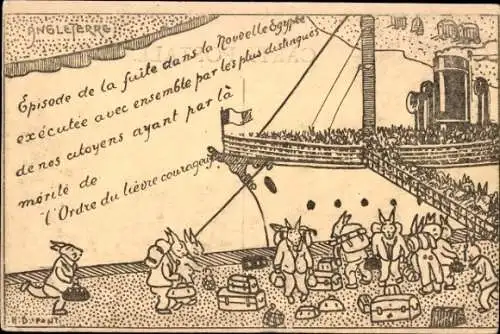 ANGLETERRE
Episode de la fuite dans la Nouvelle Egypte
exécutée avec ensemble par les plus distingués
de nos citoyens ayant par là
mérité de
"l'Ordre du lièvre courageux"